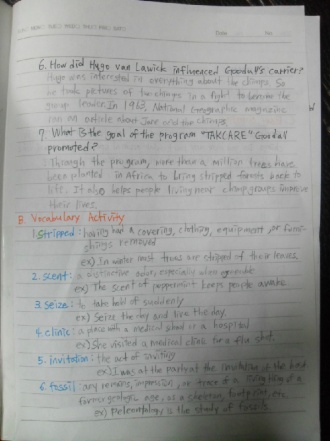 6. How did Hugo van Lawick influenced Goodall's carrier?
Hugo was interested in everything about the chimps. So
he took pictures of two chimps in a fight to become the
group leader. In 1963, National Geographic magazine
ran an article about Jane and the chimps.
7. What is the goal of the program "TAKCARE" Goodall
promoted?
Through the program, more than a million trees have
been planted in Africa to bring stripped forests back to
life. It also helps people living near chimp groups improve
their lives.
B. Vocabulary Activity
1. stripped: having had a covering, clothing, equipment, or furni-
shings removed
ex) In winter most trees are stripped of their leaves.
2. scent: a distinctive odor, especially when agreeable
ex) The scent of peppermint keeps people awake.
3. seize: to take hold of suddenly
ex) Seize the day and live the day.
4. clinic: a place with a medical in a hospital
ex) She visited a medical clinic for a flu shot.
5. invitation: the act of inviting
ex) I was at the party at the invitation of the
6. fossil: any remains, impression, or trace of a living thing of a
former geologic age, as a skeleton, footprint, etc.
ex) Paleontology is the study of fossils.